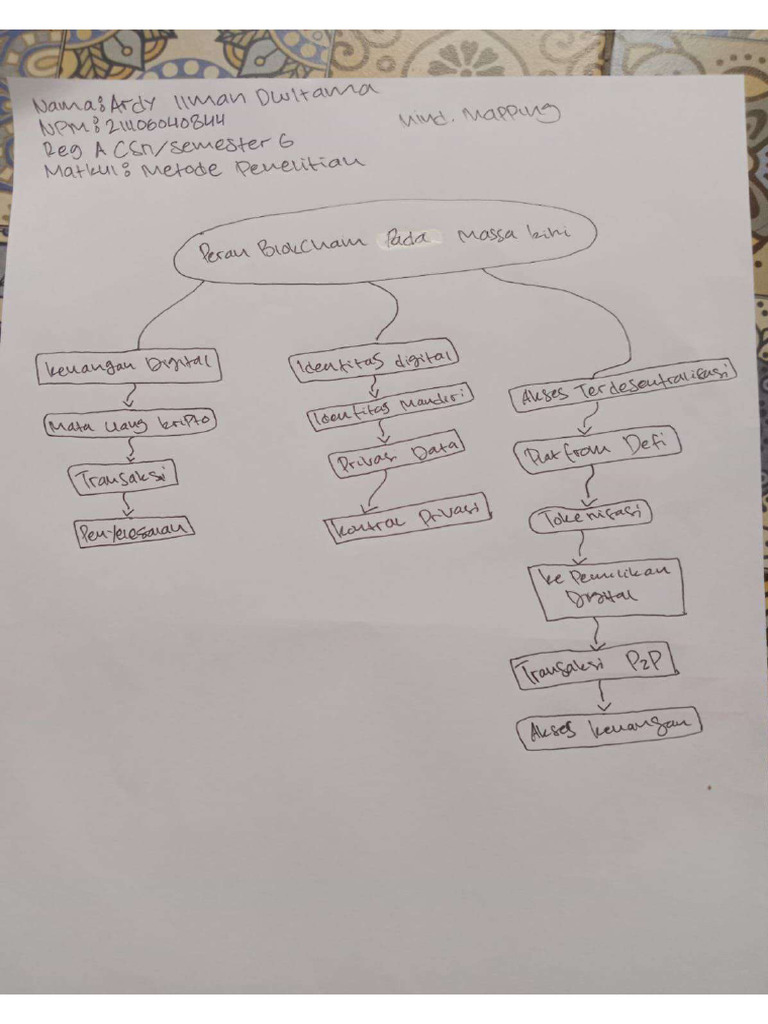 Nama: Ardy Ilman Dwitama
NPM: 21106040844
Reg A CSn/Semester 6
Matkul: Metode Penelitian
Mind. Mapping
Peran Blokchain Pada Massa kini
Keuangan Digital
Mata uang kripto
Transaksi
Penyelesaian
Identitas digital
Identitas Mandiri
Privasi Data
Kontrol Privasi
Akses Terdesentralisasi
Platfrom Defi
Tokenisasi
ke Pemilikan
Digital
Transaksi P2P
Akses keuangan